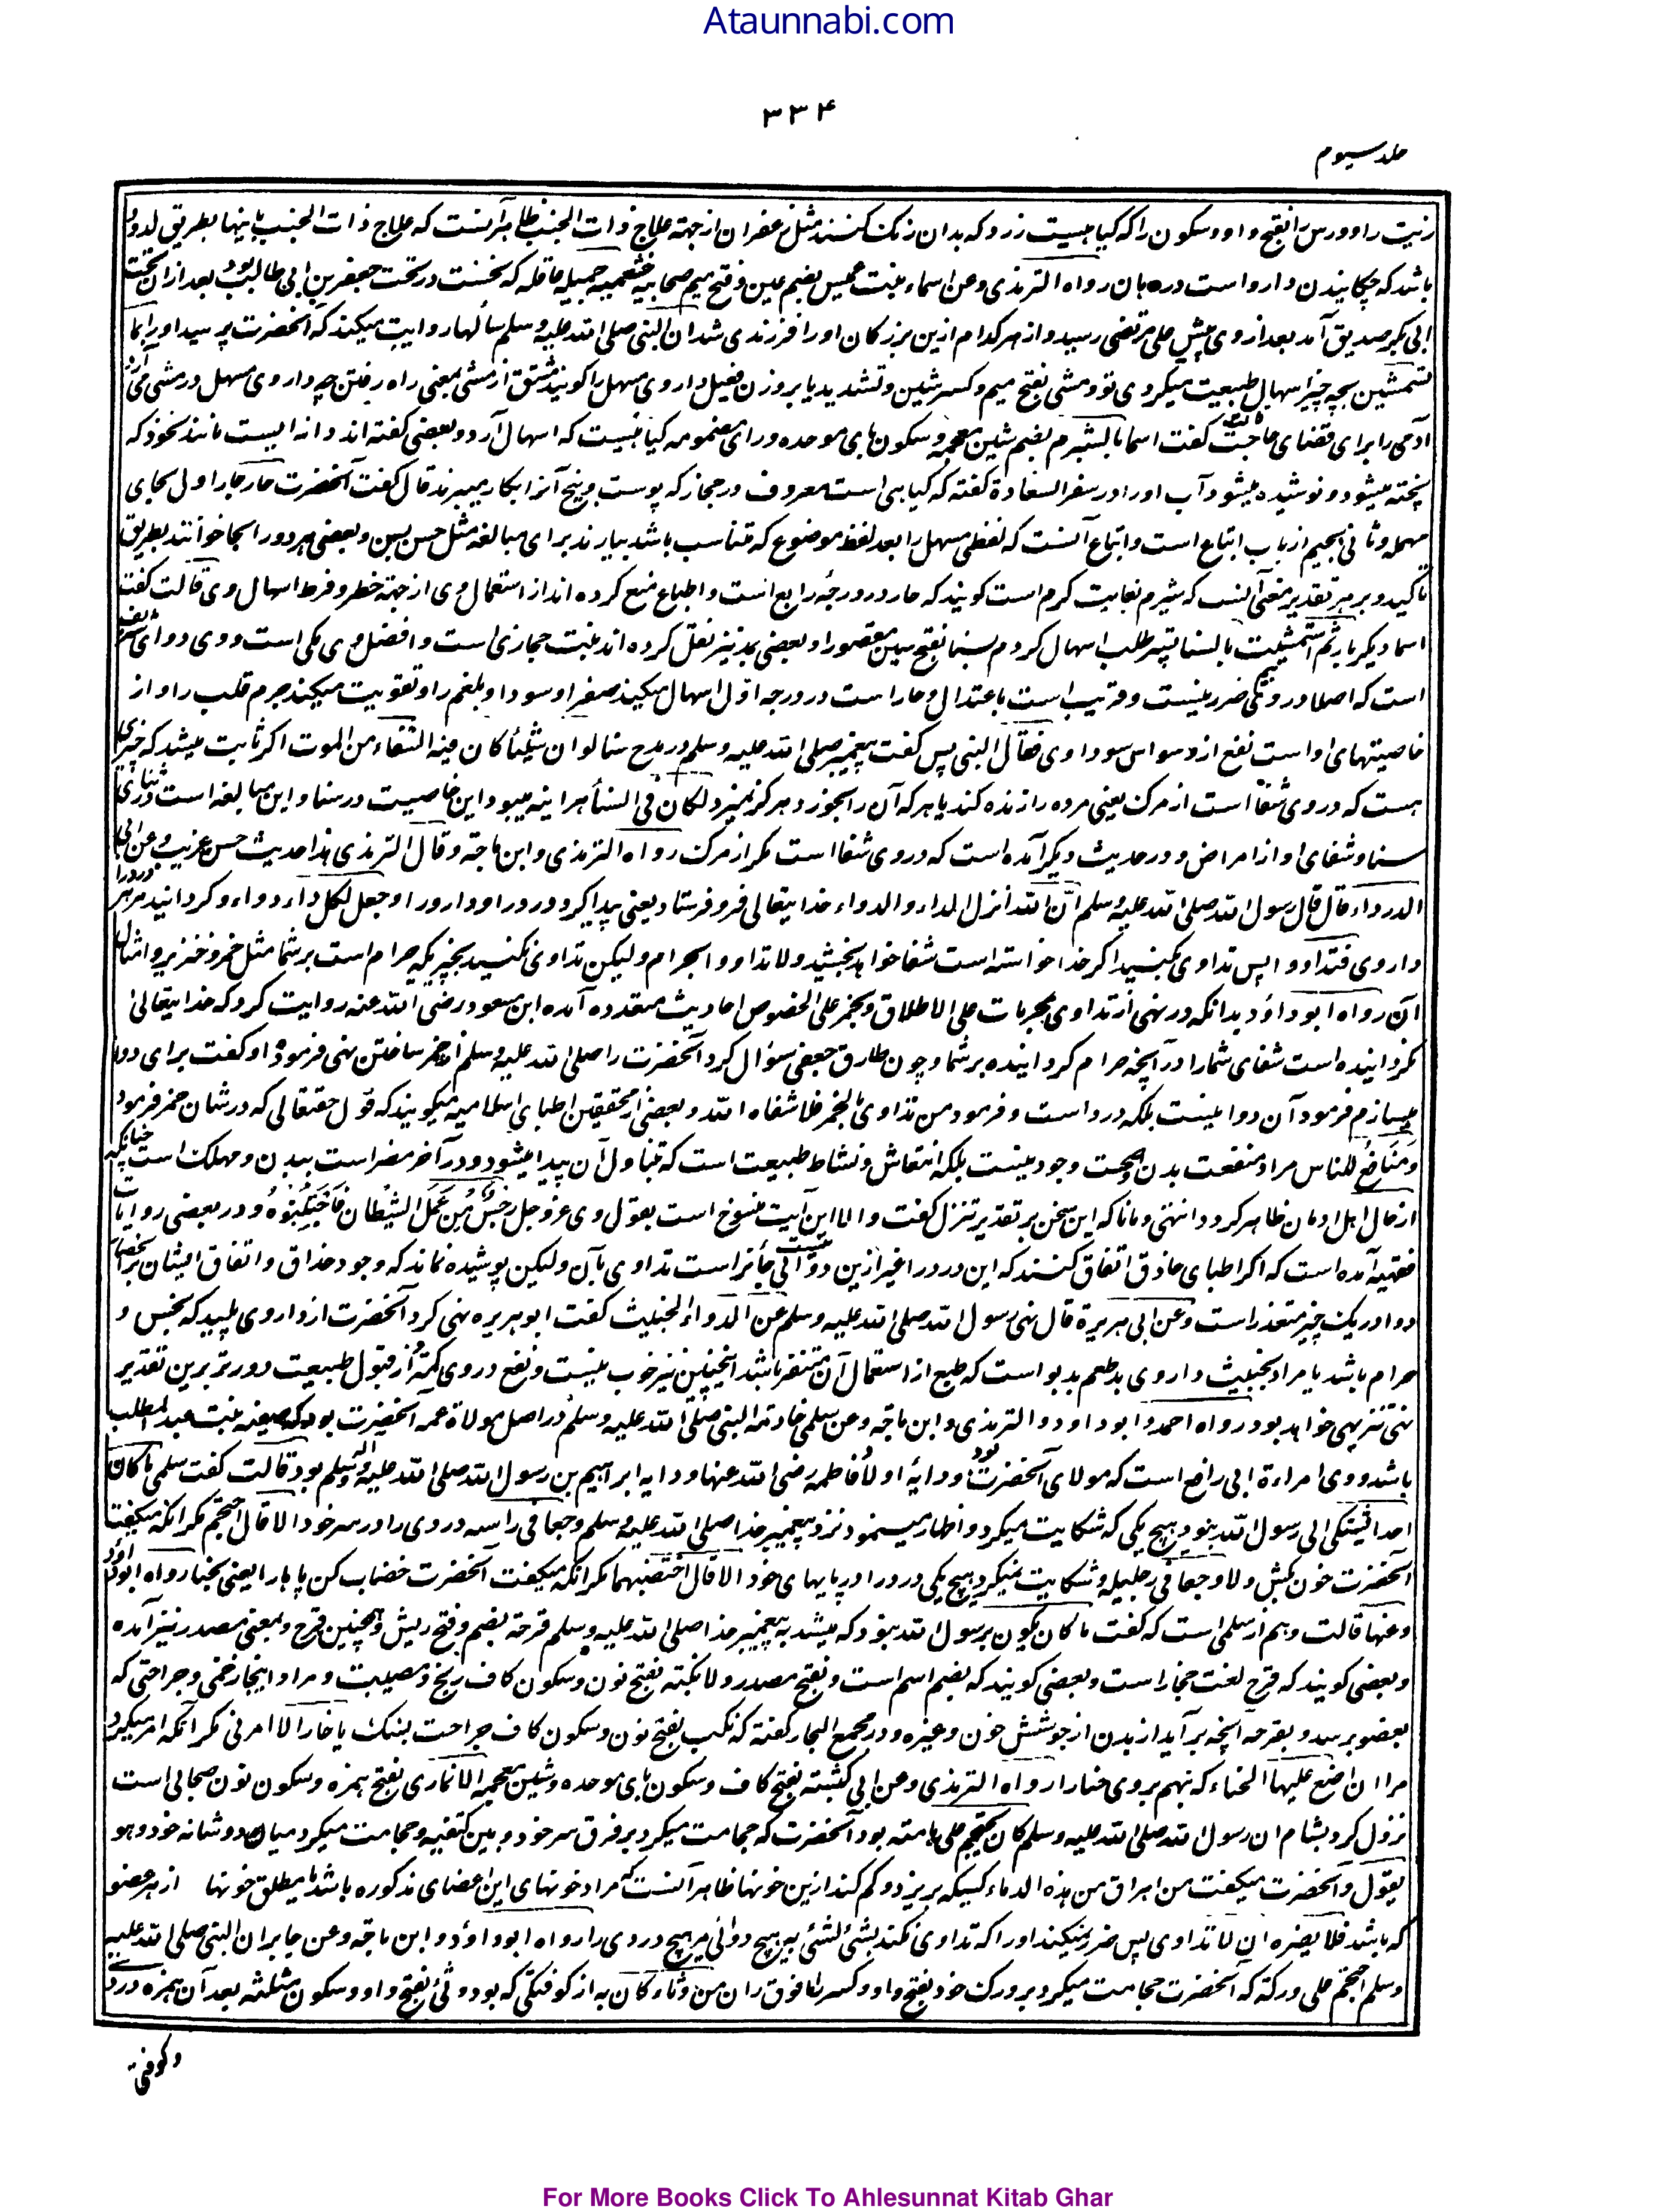 Ataunnabi.com
۳۳۴
جلد سیوم
زیت را و ورس را بفتح واو و سکون را که گیاهیست زرد که بدان رنگ کنند مثل زعفران از جهة علاج ذات الجنب ظاهر آنست که علاج ذات الجنب باینها بطریق لدود
باشد که چکانیدن دارو است در دهان رواه الترمذی وعن اسماء بنت عمیس بضم عین و فتح میم صحابیه خثعمیه جمیله عاقله که نخست در تحت جعفر بن ابی طالب بود بعد از آن تحت
ابی بکر صدیق آمد بعد از وی پیش علی مرتضی رسید و از هر کدام ازین بزرگان او را فرزندی شد ان النبی صلی الله علیه وسلم سألها روایت میکند که آنحضرت پرسید او را بما
تستمشین بچه چیز اسهال طبیعت میکردی تو و مشی بفتح میم و کسر شین و تشدید یا بر وزن فعیل داروی مسهل را گویند مشتق از مشی بمعنی راه رفتن چه داروی مسهل در مشی می آرد
آدمی را برای قضای حاجت قالت گفت اسما بالشبرم بضم شین معجمه و سکون بای موحده و رای مضمومه گیاهیست که اسهال آرد و بعضی گفته اند دانه ایست مانند نخود که
پخته میشود و نوشیده میشود آب او را در سفر السعادة گفته که گیاهی است معروف در حجاز که پوست و بیخ آنرا بکار میبرند قال گفت آنحضرت حار جار اول بحای
مهمله و ثانی بجیم از باب اتباع است و اتباع آنست که لفظی مهمل را بعد لفظ موضوع که متناسب باشد بیارند برای مبالغه مثل حسن بسن و بعضی هر دو را بحا خوانند بطریق
تاکید و بر هر تقدیر معنی آنست که شبرم بغایت گرم است گویند که حار در درجه رابع است و اطبا منع کرده اند از استعمال وی از جهة خطر و فرط اسهال وی قالت گفت
اسما دیگر بار ثم استمشیت بالسنا پستر طلب اسهال کردم بسنا بفتح سین مقصورا و بعضی بمد نیز نقل کرده اند بنت حجازی است و افضل وی مکی است و وی دوای شریف
است که اصلا در وی هیچ ضرر نیست و قریب است باعتدال و حار است در درجه اول اسهال میکند صفرا و سودا و بلغم را و تقویت میکند جرم قلب را و از
خاصیتهای او است نفع از وسواس سوداوی فقال النبی پس گفت پیغمبر صلی الله علیه وسلم در مدح سنا لو ان شیئا کان فیه الشفاء من الموت اگر ثابت میشد که چیزی
هست که در وی شفا است از مرگ یعنی مرده را زنده کند یا هر که آن را بخورد هرگز نمیرد لکان فی السنا هر اینه میبود این خاصیت در سنا و این مبالغه است در شان
سنا و شفای او از امراض و در حدیث دیگر آمده است که در وی شفا است مگر از مرگ رواه الترمذی و ابن ماجة و قال الترمذی هذا حدیث حسن غریب وعن ابی
الدرداء قال قال رسول الله صلی الله علیه وسلم ان الله انزل الداء والدواء خدایتعالی فرو فرستاد یعنی پیدا کرد درد را و دارو را وجعل لکل داء دواء و گردانید مر هر درد را
داروی فتداووا پس تداوی کنید اگر خدا خواسته است شفا خواهد بخشید ولا تداووا بحرام ولیکن تداوی نکنید بچیزیکه حرام است بر شما مثل خمر و خنزیر و امثال
آن رواه ابو داود بدانکه در نهی از تداوی بمحرمات علی الاطلاق و بخمر علی الخصوص احادیث متعدده آمده ابن مسعود رضی الله عنه روایت کرد که خدایتعالی
نگردانیده است شفای شما را در آنچه حرام گردانیده بر شما و چون طارق جعفی سؤال کرد آنحضرت را صلی الله علیه وسلم از خمر ساختن نهی فرمود او گفت برای دوا
میسازم فرمود آن دوا نیست بلکه درد است و فرمود من تداوی بالخمر فلا شفاه الله و بعضی از محققین اطبای اسلامیه میگویند که قول حقتعالی که در شان خمر فرمود
و منافع للناس مراد منفعت بدن و صحت وجود نیست بلکه انتعاش و نشاط طبیعت است که بتناول آن پیدا میشود و در آخر مضر است ببدن و مهلک است چنانکه
از حال اهل ادمان ظاهر گردد انتهی و مانا که این سخن بر تقدیر تنزل گفت والا این آیت منسوخ است بقول وی عز و جل رجس من عمل الشیطان فاجتنبوه و در بعضی روایات
فقهیه آمده است که اگر اطبای حاذق اتفاق کنند که این درد را غیر ازین دوائی نیست جائز است تداوی بآن ولیکن پوشیده نماند که وجود حذاق و اتفاق ایشان بر انحصار
دوا در یک چیز متعذر است وعن ابی هریرة قال نهی رسول الله صلی الله علیه وسلم عن الدواء الخبیث گفت ابو هریره نهی کرد آنحضرت از داروی پلید که نجس و
حرام باشد یا مراد بخبیث داروی بدطعم بدبو است که طبع از استعمال آن متنفر باشد اینچنین نیز خوب نیست و نفع در وی کمتر و از قبول طبیعت دورتر برین تقدیر
نهی تنزیهی خواهد بود رواه احمد و ابو داود و الترمذی و ابن ماجه وعن سلمی خادمة النبی صلی الله علیه وسلم در اصل مولاة عمه آنحضرت بود که صفیه بنت عبد المطلب
باشد و وی امراءة ابی رافع است که مولای آنحضرت بود و دایه اولاد فاطمه رضی الله عنها و دایه ابراهیم بن رسول الله صلی الله علیه وآله وسلم بود قالت گفت سلمی ما کان
احد یشتکی الی رسول الله نبود هیچ یکی که شکایت میکرد و اظهار مینمود نزد پیغمبر خدا صلی الله علیه وسلم وجعا فی راسه دردی را در سر خود الا قال احتجم مگر آنکه میگفت
آنحضرت خون بکش ولا وجعا فی رجلیه و شکایت نمیکرد هیچ یکی درد را در پایهای خود الا قال اختضبهما مگر آنکه میگفت آنحضرت خضاب کن پاها را یعنی بحنا رواه ابو داود
وعنها قالت و هم از سلمی است که گفت ما کان یکون برسول الله نبود که میشد به پیغمبر خدا صلی الله علیه وسلم قرحة بضم و فتح ریش و همچنین قرح و بمعنی مصدر نیز آمده
و بعضی گویند که قرح لغت حجاز است و بعضی گویند که بضم اسم است و بفتح مصدر ولا نکبة بفتح نون و سکون کاف رنج و مصیبت و مراد اینجا زخمی و جراحتی که
بعضو برسد و بقرحه آنچه برآید از بدن از جوشش خون و غیره و در مجمع البحار گفته که نکب بفتح نون و سکون کاف جراحت بسنگ یا خار الا امرنی مگر آنکه امر میکرد
مرا ان اضع علیها الحناء که بنهم بر وی حنا را رواه الترمذی وعن ابی کبشة بفتح کاف و سکون بای موحده و شین معجمه الانماری بفتح همزه و سکون نون صحابی است
نزول کرد بشام ان رسول الله صلی الله علیه وسلم کان یحتجم علی هامته بود آنحضرت که حجامت میکرد بر فرق سر خود و بین کتفیه و حجامت میکرد میان دو شانه خود و هو
یقول و آنحضرت میگفت من اهراق من هذه الدماء کسیکه بریزد و کم کند ازین خونها ظاهر آنست که مراد خونهای این اعضای مذکوره باشد یا مطلق خونها از هر عضو
که باشد فلا یضره ان لا تداوی پس ضرر نمیکند او را که تداوی نکند بشئ لشئ به هیچ دوائی مر هیچ دردی را رواه ابو داود و ابن ماجه وعن جابر ان النبی صلی الله علیه
وسلم احتجم علی ورکه که آنحضرت حجامت میکرد بر ورک خود بفتح واو و کسر را فوق ران من وثاء کان به از کوفتگی که بود و ثئ بفتح واو و سکون مثلثه بعد آن همزه درد
و کوفتی
For More Books Click To Ahlesunnat Kitab Ghar